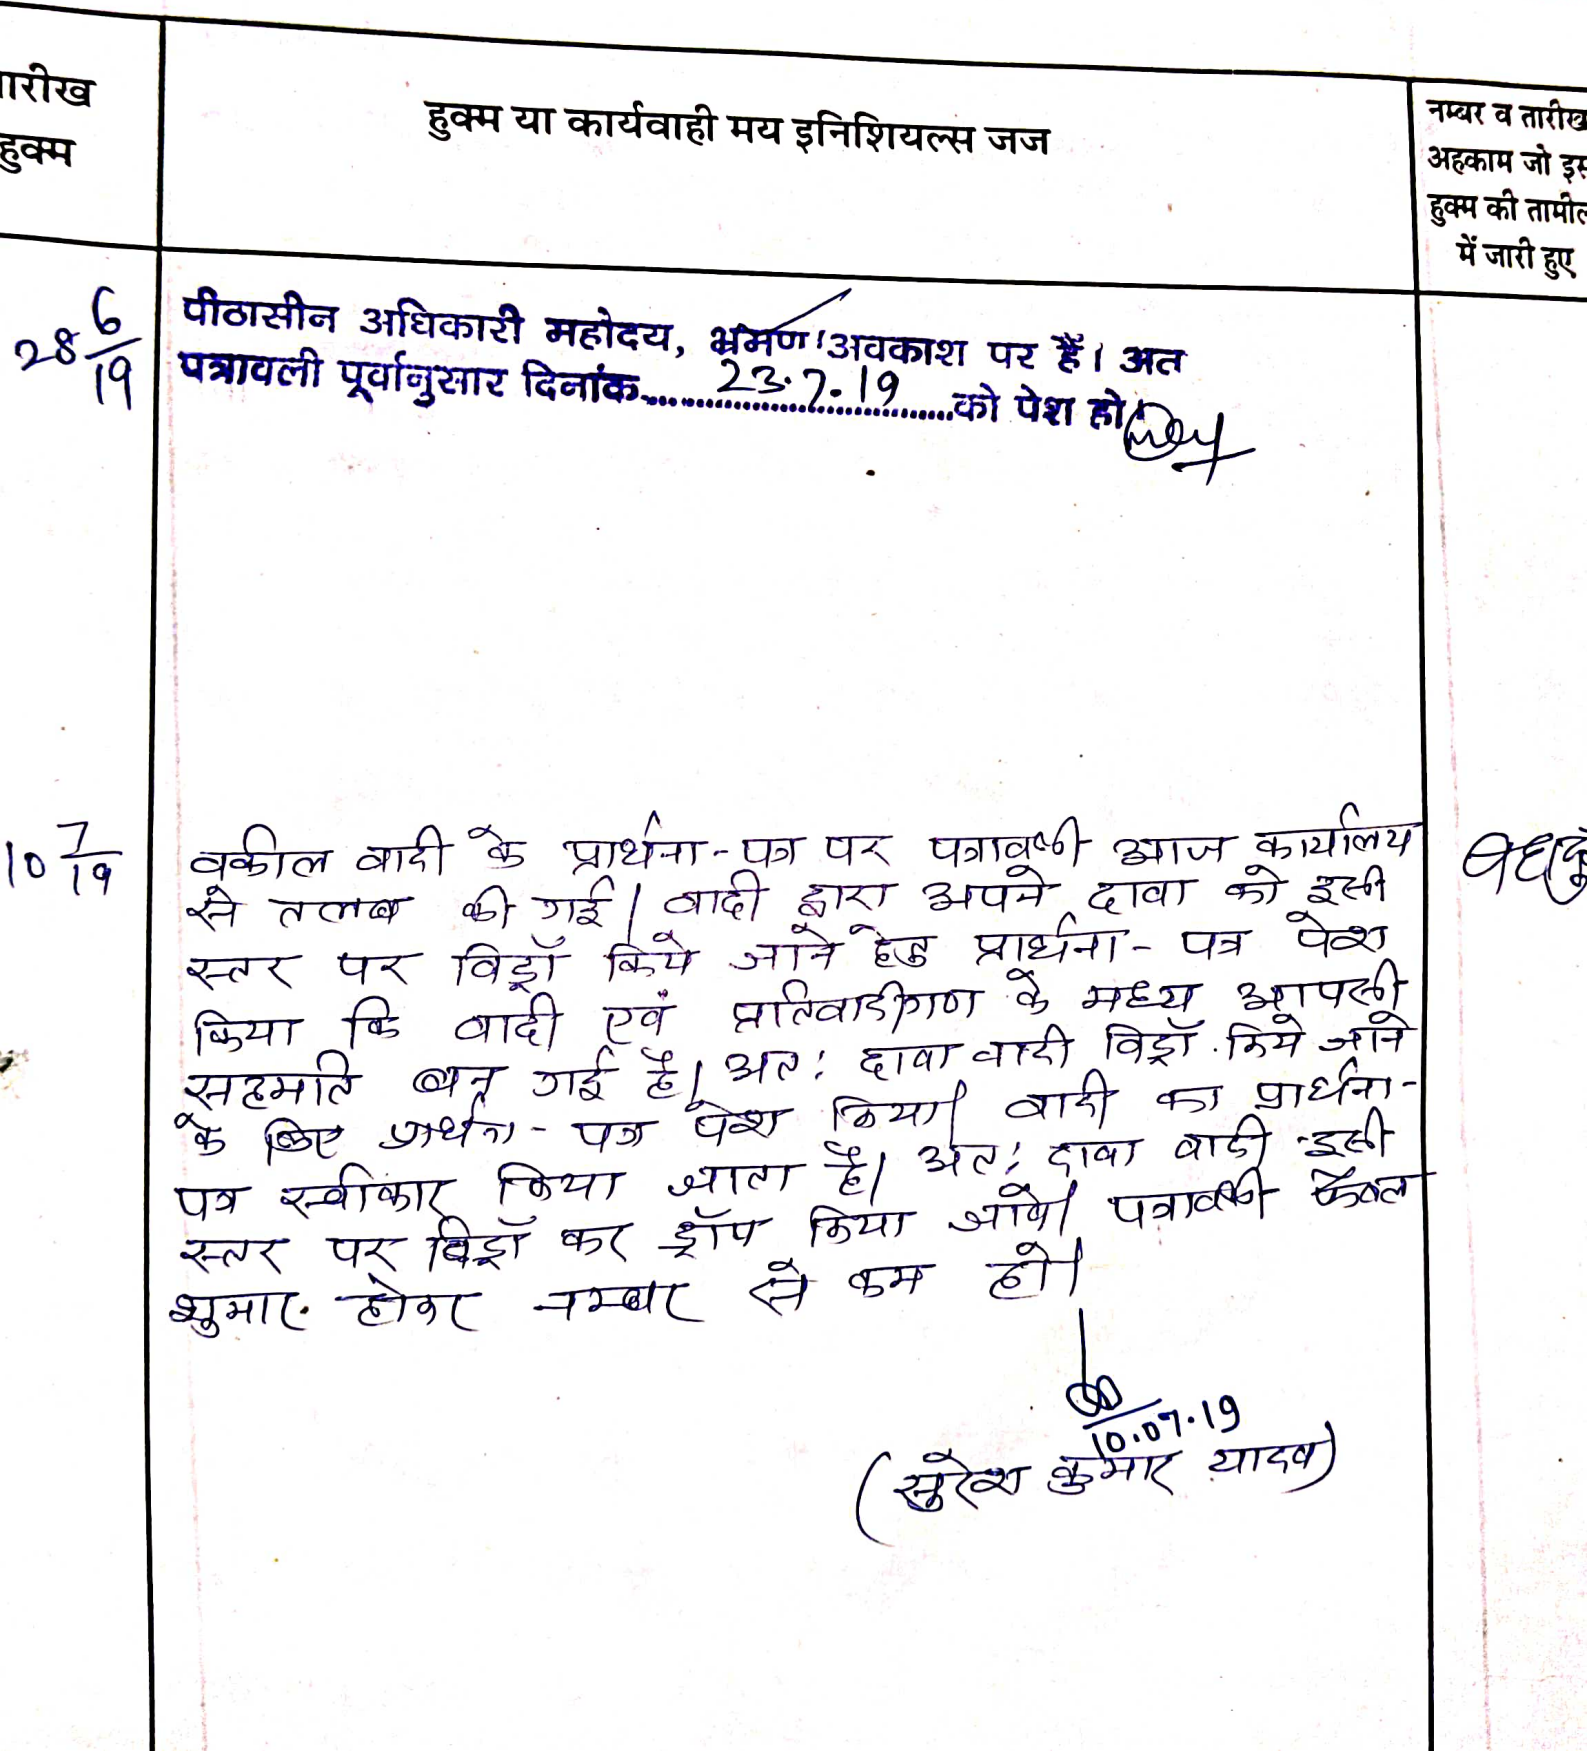 तारीख
हुक्म
हुक्म या कार्यवाही मय इनिशियल्स जज
नम्बर व तारीख
अहकाम जो इस
हुक्म की तामील
में जारी हुए
28 6/19
पीठासीन अधिकारी महोदय, भ्रमण/अवकाश पर हैं। अत
पत्रावली पूर्वानुसार दिनांक 23.7.19 को पेश हो।
10 7/19
वकील वादी के प्रार्थना-पत्र पर पत्रावली आज कार्यालय
से तलब की गई। वादी द्वारा अपने दावा को इसी
स्तर पर विड्रॉ किये जाने हेतु प्रार्थना-पत्र पेश
किया कि वादी एवं प्रतिवादीगण के मध्य आपसी
सहमति बन गई है। अतः दावा वादी विड्रॉ किये जाने
के लिए प्रार्थना-पत्र पेश किया। वादी का प्रार्थना-
पत्र स्वीकार किया जाता है। अतः दावा वादी इसी
स्तर पर विड्रॉ कर ड्रॉप किया जावे। पत्रावली फैसल
शुमार होकर नम्बर से कम हो।
10.07.19
(सुरेश कुमार यादव)